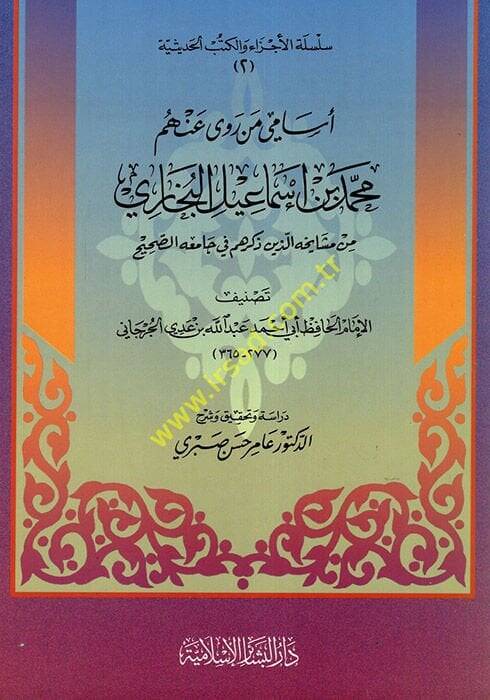 سلسلة الأجزاء والكتب الحديثية
(٢)
أسامي من روى عنهم
محمد بن إسماعيل البخاري
من مشايخه الذين ذكرهم في جامعه الصحيح
تصنيف
الإمام الحافظ أبي أحمد عبد الله بن عدي الجرجاني
(٢٧٧ - ٣٦٥)
دراسة وتحقيق وشرح
الدكتور عامر حسن صبري
دار البشائر الإسلامية
www.irsad.com.tr